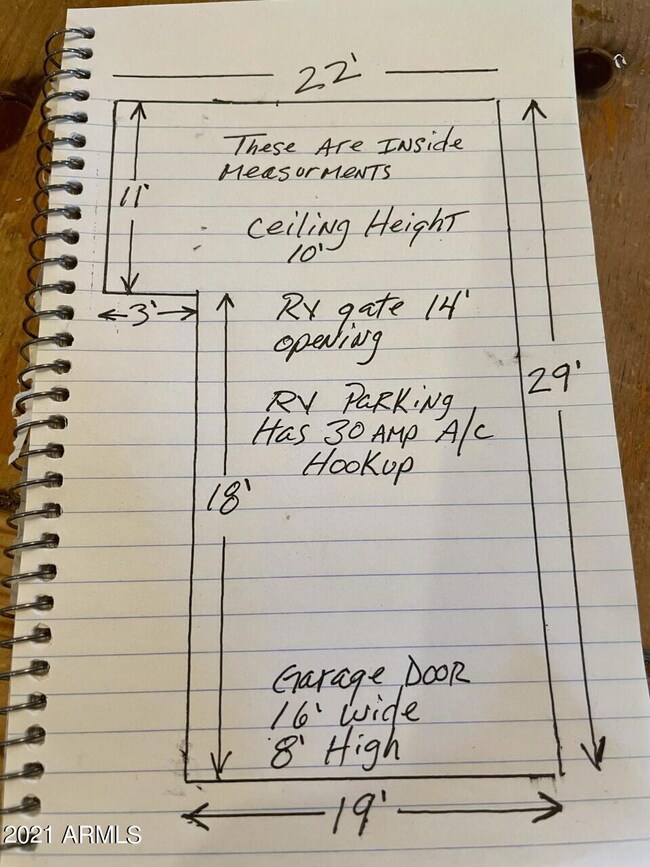 22'
These Are Inside
Measurments
11'
Ceiling Height
10'
3'
RV gate 14'
opening
29'
RV Parking
Has 30 Amp A/C
Hookup
18'
Garage Door
16' wide
8' High
19'
2021 ARMLS